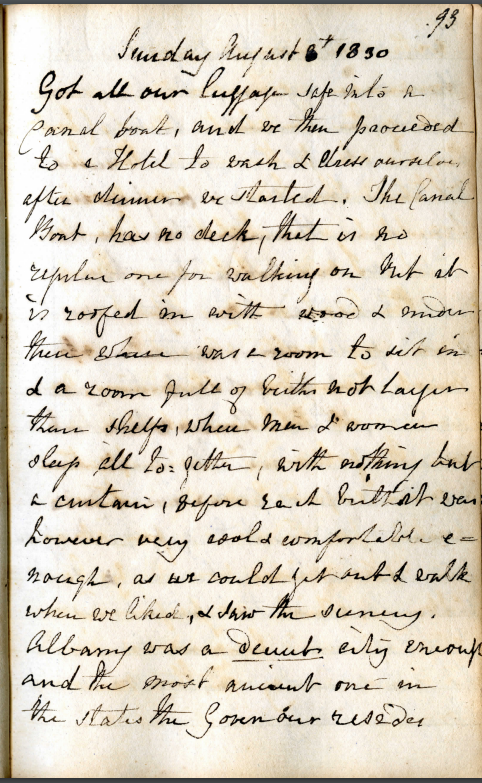 93
Sunday August 8t 1830
Got all our luggage safe into a
Canal boat, and we then proceeded
to a Hotel to wash & dress ourselves
after dinner we started. The Canal
Boat, has no deck, that is no
regular one for walking on but it
is roofed in with wood & under
there was a room to sit in
& a room full of births not larger
than shelfs, where men & women
sleep all to=gether, with nothing but
a curtain, before each birth it was
however very cool & comfortable e=
nough, as we could get out & walk
when we liked, & saw the scenery.
Albany was a decent city enough
and the most ancient one in
the states the Governour resides